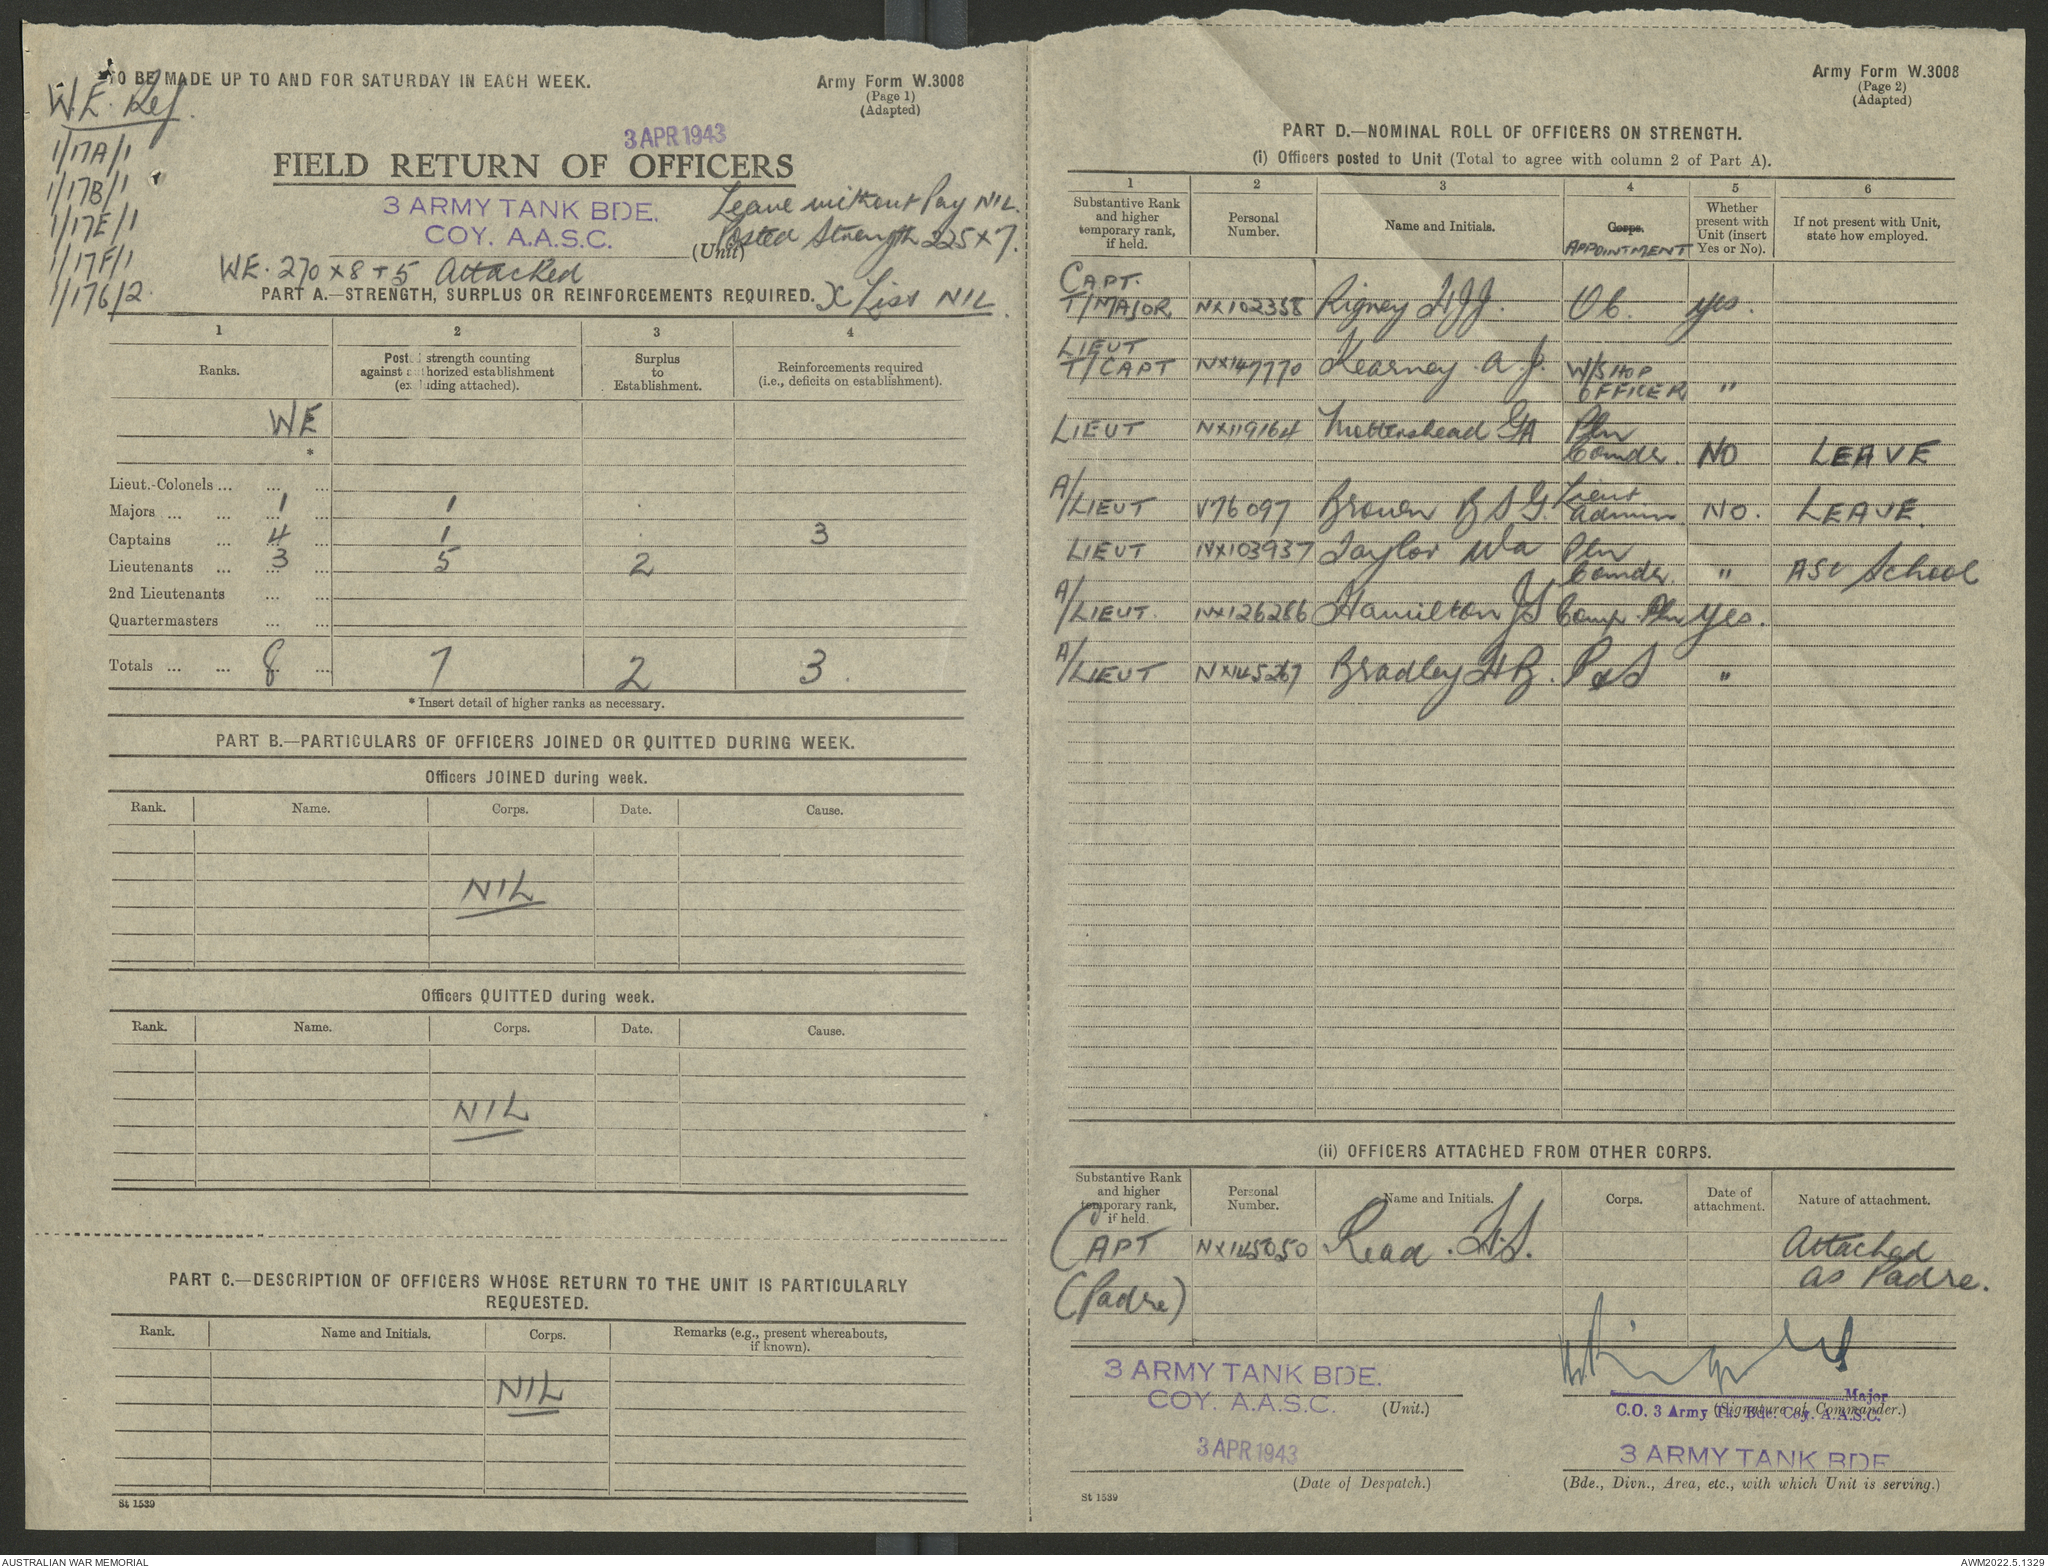 TO BE MADE UP TO AND FOR SATURDAY IN EACH WEEK.
Army Form W.3008
(Page 1)
(Adapted)
W.E. Ref.
1/17A/1
1/17B/1
1/17E/1
1/17F/1
1/17G/2
3 APR 1943
FIELD RETURN OF OFFICERS
3 ARMY TANK BDE.
COY. A.A.S.C.
(Unit)
Leave without Pay NIL.
Posted Strength 225 x 7.
WE. 270 x 8 + 5 Attached
PART A.—STRENGTH, SURPLUS OR REINFORCEMENTS REQUIRED. X List NIL.
1 2 3 4
Ranks. Posted strength counting against authorized establishment (excluding attached). Surplus to Establishment. Reinforcements required (i.e., deficits on establishment).
WE
*
Lieut.-Colonels ... ... ...
Majors ... ... 1 ... 1
Captains ... 4 ... 1 3
Lieutenants ... 3 ... 5 2
2nd Lieutenants ... ...
Quartermasters ... ...
Totals ... ... 8 ... 7 2 3.
* Insert detail of higher ranks as necessary.
PART B.—PARTICULARS OF OFFICERS JOINED OR QUITTED DURING WEEK.
Officers JOINED during week.
Rank. Name. Corps. Date. Cause.
NIL
Officers QUITTED during week.
Rank. Name. Corps. Date. Cause.
NIL
PART C.—DESCRIPTION OF OFFICERS WHOSE RETURN TO THE UNIT IS PARTICULARLY
REQUESTED.
Rank. Name and Initials. Corps. Remarks (e.g., present whereabouts, if known).
NIL
St 1539
Army Form W.3008
(Page 2)
(Adapted)
PART D.—NOMINAL ROLL OF OFFICERS ON STRENGTH.
(i) Officers posted to Unit (Total to agree with column 2 of Part A).
1 2 3 4 5 6
Substantive Rank and higher temporary rank, if held. Personal Number. Name and Initials. Corps. APPOINTMENT Whether present with Unit (insert Yes or No). If not present with Unit, state how employed.
CAPT.
T/MAJOR. NX102358 Rigney H J J. O C. yes.
LIEUT
T/CAPT NX147770 Kearney. A. J. W/SHOP
OFFICER "
LIEUT NX119164 Mottershead GA Pln
Comdr. NO LEAVE
A/
LIEUT V76097 Brown B S G. Lieut
Admin. NO. LEAVE.
LIEUT NX103937 Taylor WA Pln
Comdr. " ASC School
A/
LIEUT. NX126286 Hamilton JS Comp. Pln yes.
A/
LIEUT NX145267 Bradley H B. P & S "
(ii) OFFICERS ATTACHED FROM OTHER CORPS.
Substantive Rank and higher temporary rank, if held. Personal Number. Name and Initials. Corps. Date of attachment. Nature of attachment.
CAPT NX145050 Read. Attached
(Padre) as Padre.
3 ARMY TANK BDE.
COY. A.A.S.C. (Unit.)
Major
C.O. 3 Army Tk. Bde. Coy. A.A.S.C.
(Signature of Commander.)
3 APR 1943
(Date of Despatch.)
3 ARMY TANK BDE
(Bde., Divn., Area, etc., with which Unit is serving.)
St 1539
AUSTRALIAN WAR MEMORIAL
AWM2022.5.1329